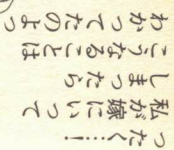 ったく…!
私が嫁にいって
しまったら
こうなることは
わかってたのよっ